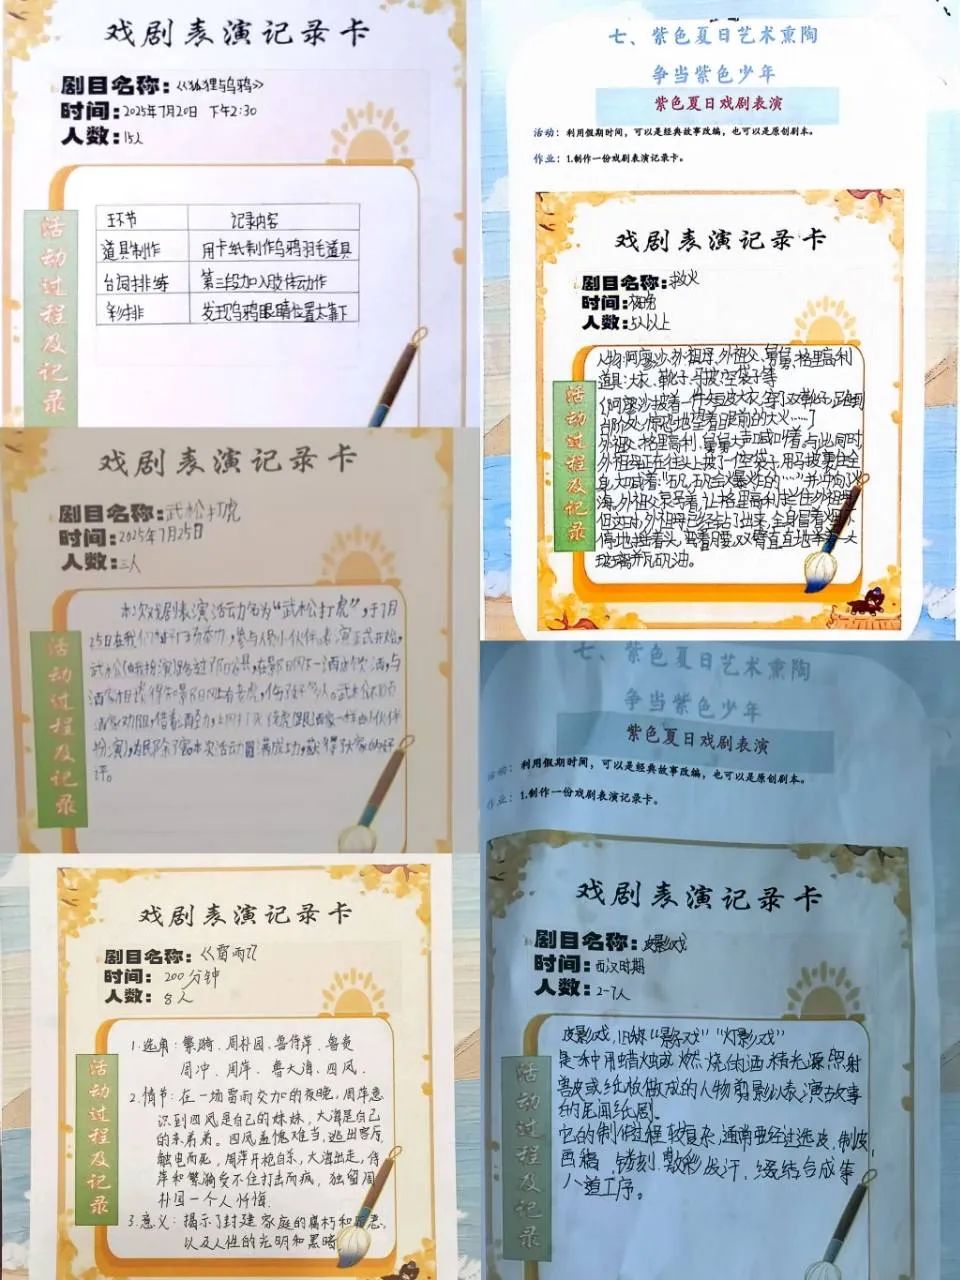 戏剧表演记录卡
剧目名称：《狐狸与乌鸦》
时间：2025年7月20日 下午2:30
人数：15人
活动过程及记录
环节 记录内容
道具制作 用卡纸制作乌鸦羽毛道具
台词排练 第三段加入肢体动作
彩排 发现乌鸦眼睛位置太靠下
七、紫色夏日艺术熏陶
争当紫色少年
紫色夏日戏剧表演
活动：利用假期时间，可以是经典故事改编，也可以是原创剧本。
作业：1.制作一份戏剧表演记录卡。
戏剧表演记录卡
剧目名称：救火
时间：夜晚
人数：5人以上
活动过程及记录
人物：阿廖沙、外祖母、外祖父、舅舅、格里高利
道具：大衣、靴子、马披、空袋子等
(阿廖沙披着一件短皮大衣，穿了双靴子，跑到
台阶处，惊恐地望着眼前的大火……)
外祖父、格里高利、舅舅大声喊叫着，与此同时
外祖母正在往头上披了一个空袋子，用马披裹住全
身，大喊着："矾，矾会爆炸的……"并冲向火
海。外祖父哀号着，让格里高利拦住外祖母
但这时，外祖母已经钻了出来，全身冒着烟，不
停地摇着头，弯着腰，双臂直直地端着一大
玻璃瓶矾油。
戏剧表演记录卡
剧目名称：武松打虎
时间：2025年7月25日
人数：三人
活动过程及记录
本次戏剧表演活动名为"武松打虎"，于7月
25日在我们 参与人 小伙伴。表演正式开始，
武松(我扮演)路过阳谷县，在景阳冈下一酒店饮酒，与
酒家相谈得知景阳冈上有老虎，伤了 人。武松不听
酒家劝阻，借着酒劲，上冈打死 虎(跟酒家一样由小伙伴
扮演)，为民除了害。本次活动圆满成功，获得了大家的好
评。
戏剧表演记录卡
剧目名称：《雷雨》
时间：200分钟
人数：8人
活动过程及记录
1.选角：繁漪、周朴园、鲁侍萍、鲁贵
周冲、周萍、鲁大海、四凤.
2.情节：在一场雷雨交加的夜晚，周萍意
识到四凤是自己的妹妹，大海是自己
的亲弟弟。四凤羞愧难当，逃出客厅
触电而死，周萍开枪自杀，大海出走，侍
萍和繁漪受不住打击而疯，独留周
朴园一个人忏悔.
3.意义：揭示了封建家庭的腐朽和罪恶，
以及人性的光明和黑暗
七、紫色夏日艺术熏陶
争当紫色少年
紫色夏日戏剧表演
活动：利用假期时间，可以是经典故事改编，也可以是原创剧本。
作业：1.制作一份戏剧表演记录卡。
戏剧表演记录卡
剧目名称：皮影戏
时间：西汉时期
人数：2-7人
活动过程及记录
皮影戏，旧称"影子戏""灯影戏"
是一种用蜡烛或燃烧的酒精光源照射
兽皮或纸板做成的人物剪影以表演故事
的民间纸剧.
它的制作过程较复杂，通常要经过选皮、制皮、
画稿、镂刻、敷彩、发汗、缀结合成等
八道工序。